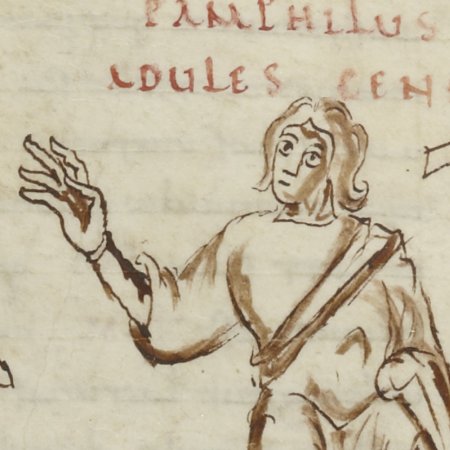 PAMPHILUS
ADULES CENS